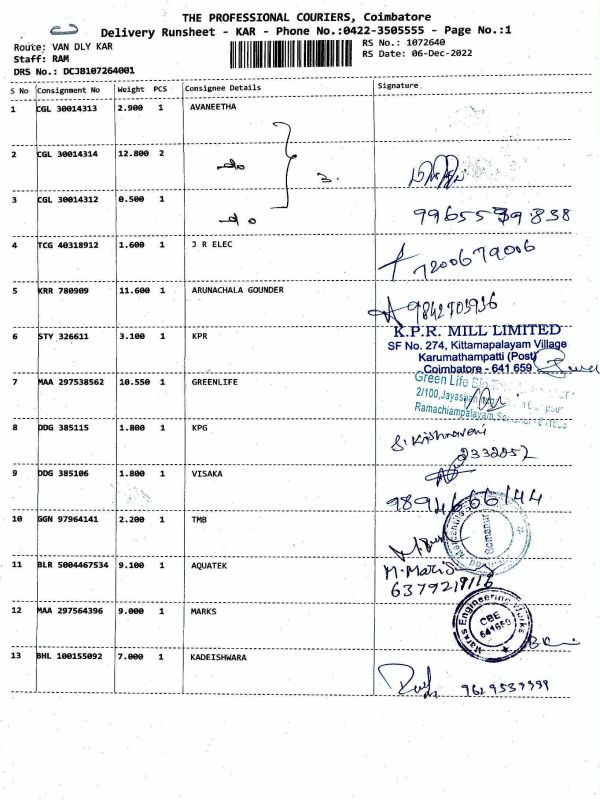 THE PROFESSIONAL COURIERS, Coimbatore
Delivery Runsheet - KAR - Phone No.:0422-3505555 - Page No.:1
Route: VAN DLY KAR
RS No.: 1072640
Staff: RAM
RS Date: 06-Dec-2022
DRS No.: DCJB107264001
S No Consignment No Weight PCS Consignee Details Signature
1 CGL 30014313 2.900 1 AVANEETHA
2 CGL 30014314 12.800 2 do 3.
3 CGL 30014312 0.500 1 do 9965539838
4 TCG 40318912 1.600 1 J R ELEC 7200679006
5 KRR 780909 11.600 1 ARUNACHALA GOUNDER 9842703936
6 STY 326611 3.100 1 KPR
K.P.R. MILL LIMITED
SF No. 274, Kittamapalayam Village
Karumathampatti (Post)
Coimbatore - 641 659
7 MAA 297538562 10.550 1 GREENLIFE
Green Life
2/100,
Ramachiampalayam,
8 DDG 385115 1.800 1 KPG
S. Krishnaveni
2332852
9 DDG 385106 1.800 1 VISAKA
9894666144
10 GGN 97964141 2.200 1 TMB
Somanur
11 BLR 5004467534 9.100 1 AQUATEK
M. Maris
6379219118
12 MAA 297564396 9.000 1 MARKS
Marks Engineering Works
CBE
641659
13 BHL 100155092 7.000 1 KADEISHWARA
9629539999